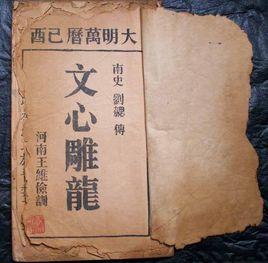 大明萬曆已酉
南史 劉勰 傳
文心雕龍
河南王維儉訓